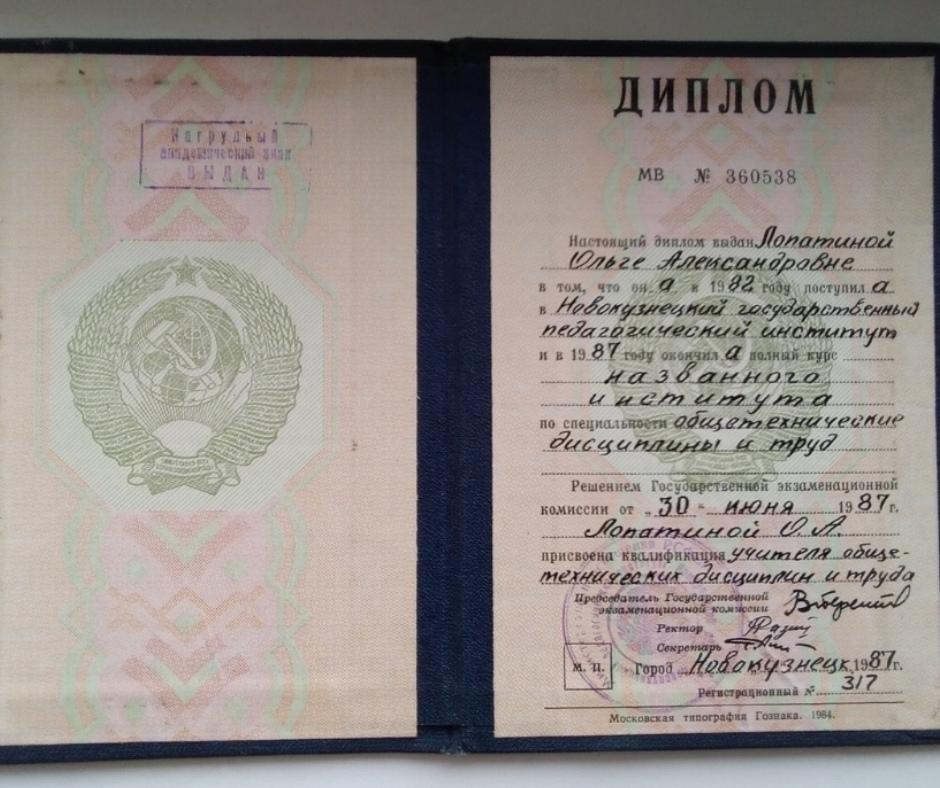 Нагрудный
академический знак
ВЫДАН
ДИПЛОМ
МВ № 360538
Настоящий диплом выдан Лопатиной
Ольге Александровне
в том, что он а в 1982 году поступил а
в Новокузнецкий государственный
педагогический институт
и в 1987 году окончил а полный курс
названного
института
по специальности общетехнические
дисциплины и труд
Решением Государственной экзаменационной
комиссии от „30“ июня 1987 г.
Лопатиной О. А.
присвоена квалификация учителя обще-
технических дисциплин и труда
Председатель Государственной
экзаменационной комиссии
Ректор
Секретарь
М. П. Город Новокузнецк 1987 г.
Регистрационный № 317
Московская типография Гознака. 1984.